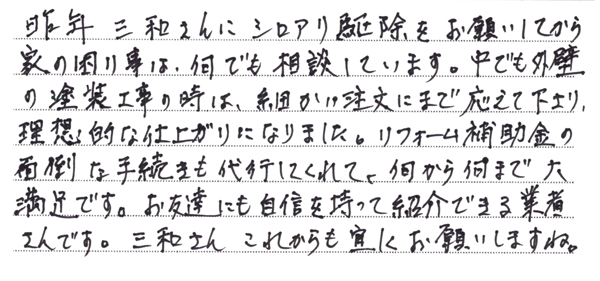 昨年 三和さんに シロアリ駆除を お願いしてから
家の困り事は、何でも 相談しています。中でも外壁
の塗装工事の時は、細かい注文にまで 応えて下さり、
理想的な仕上がりになりました。リフォーム補助金の
面倒な手続きも代行してくれて、何から何まで大
満足です。お友達にも自信を持って紹介できる業者
さんです。三和さん これからも 宜しくお願いしますね。